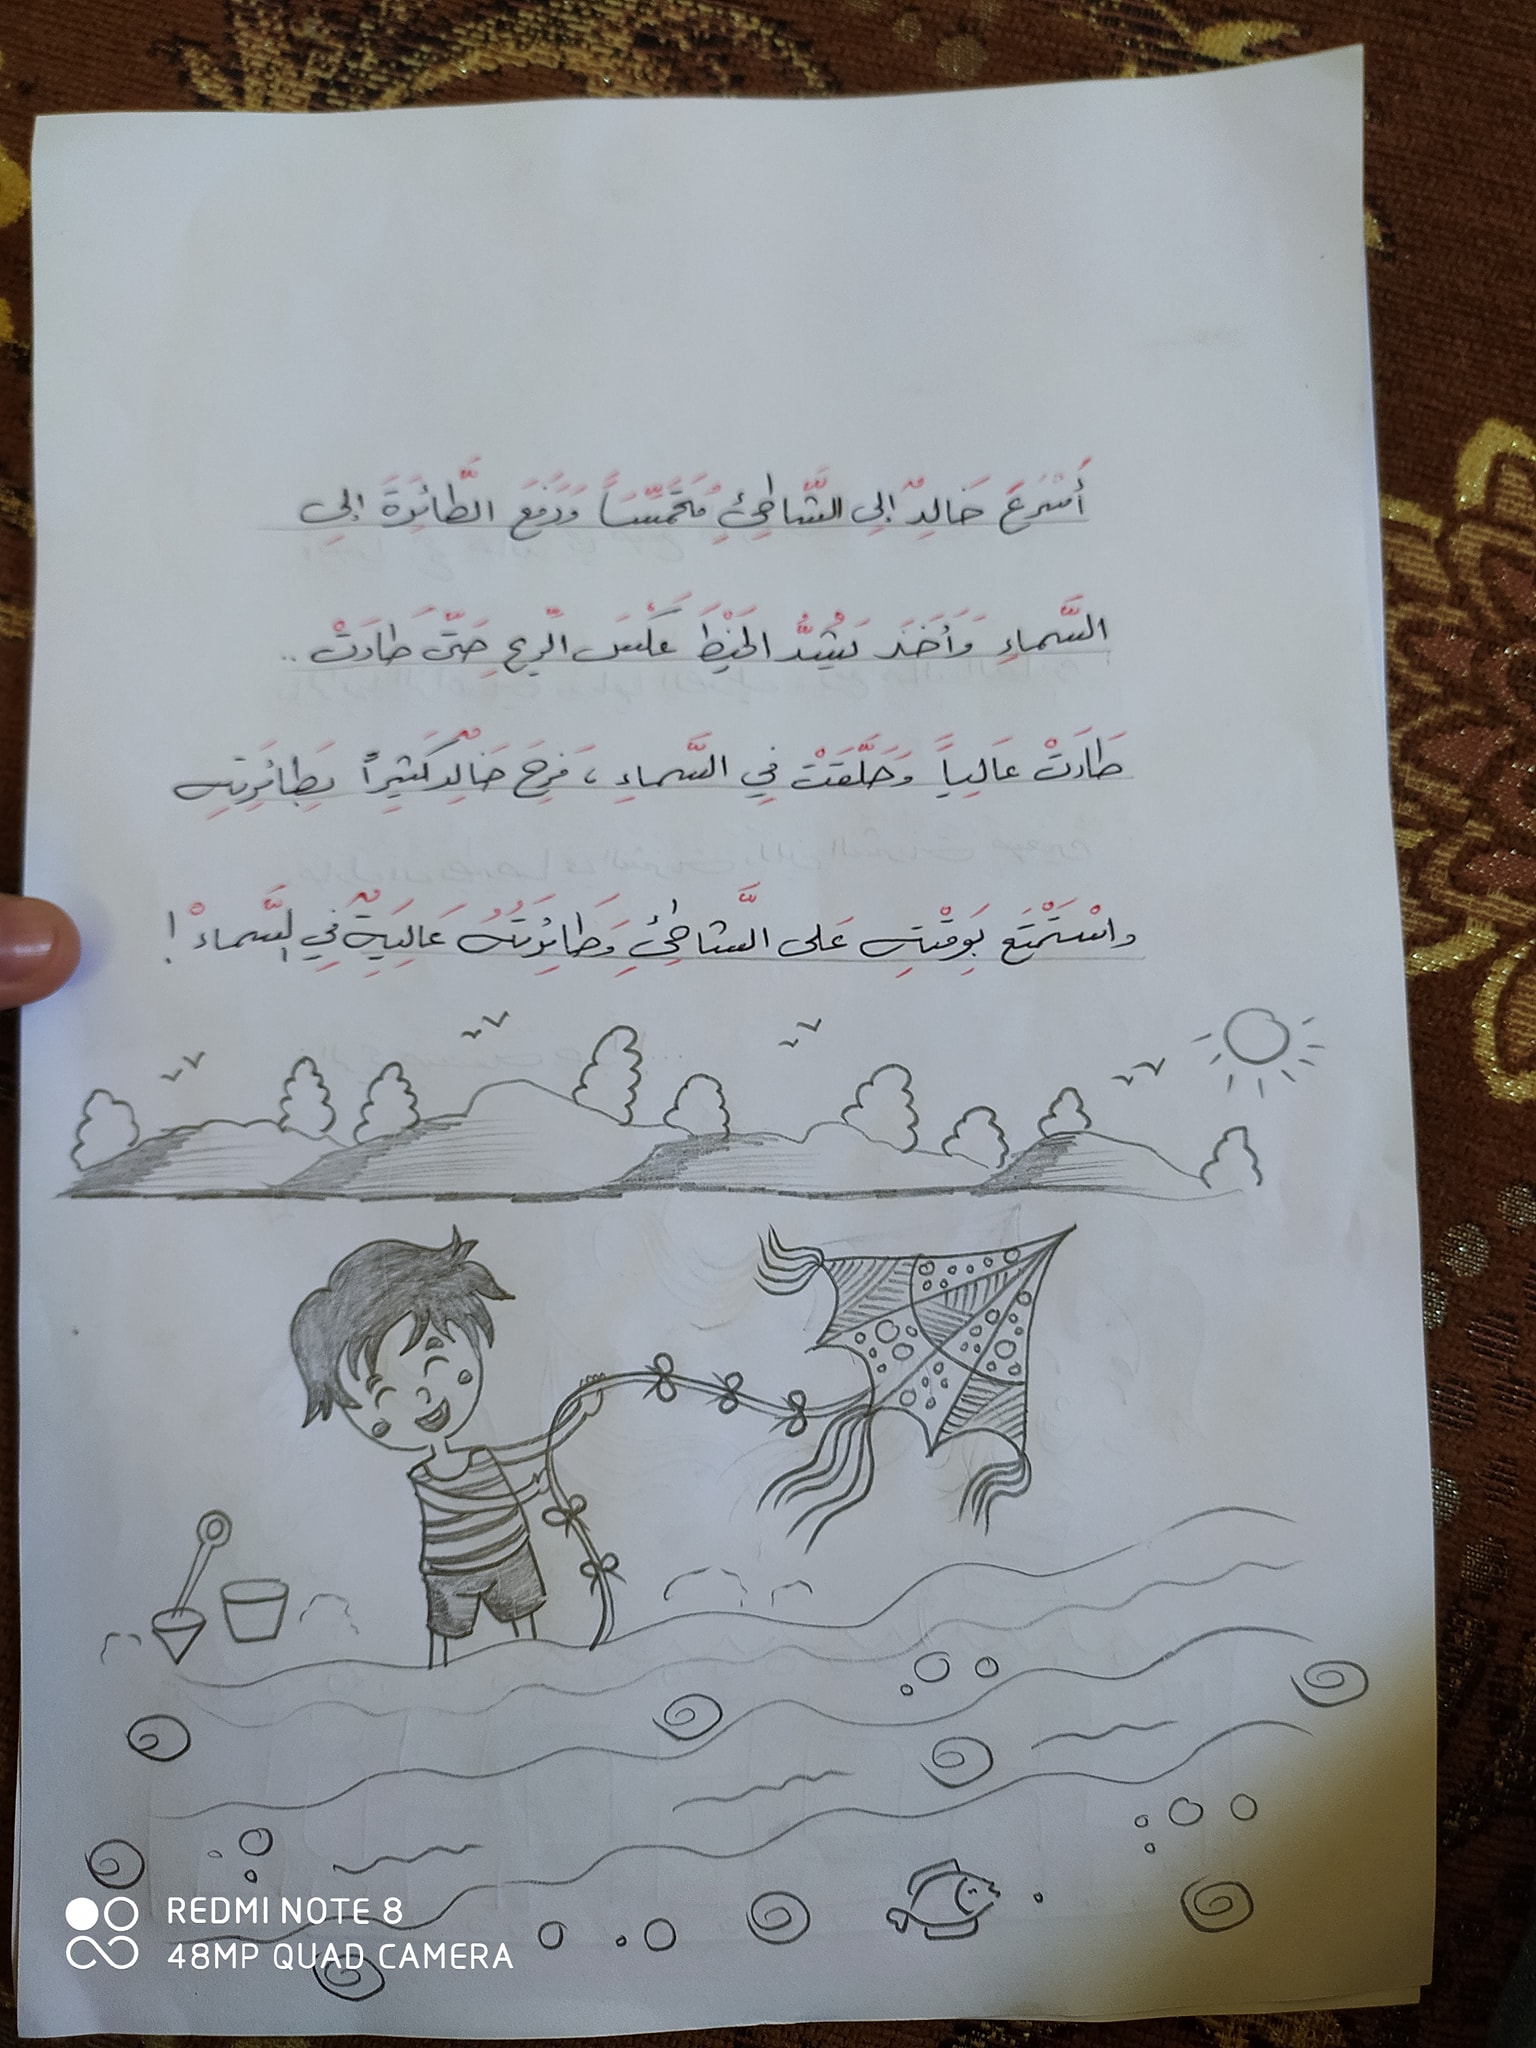 أَسْرَعَ خَالِدٌ إلى الشَّاطِئِ مُتَحَمِّسَاً وَرَفَعَ الطَّائِرَةَ إلى
السَّماءِ وَأَخَذَ يَشُدُّ الخَيْطَ عَكْسَ الرِّيحِ حَتَّى طَارَتْ ..
طَارَتْ عَالِياً وَحَلَّقَتْ فِي السَّماءِ ، فَرِحَ خَالِدٌ كَثِيرَاً بِطَائِرَتِهِ
واسْتَمْتَعَ بِوَقْتِهِ عَلى الشَّاطِئِ وَطَائِرَتُهُ عَالِيَةٌ فِي السَّماءْ !
REDMI NOTE 8
48MP QUAD CAMERA